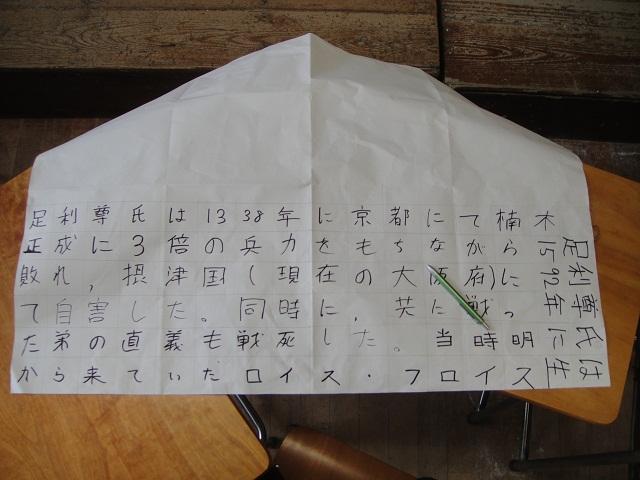 足利尊氏は1338年に京都にて楠木
正成に3倍の兵力をもちながら
敗れ,摂津国(現在の大阪府)に
て自害した。同時に,共に戦っ
た弟の直義も戦死した。当時明
から来ていたロイス・フロイス
足利尊氏は
1592年に生